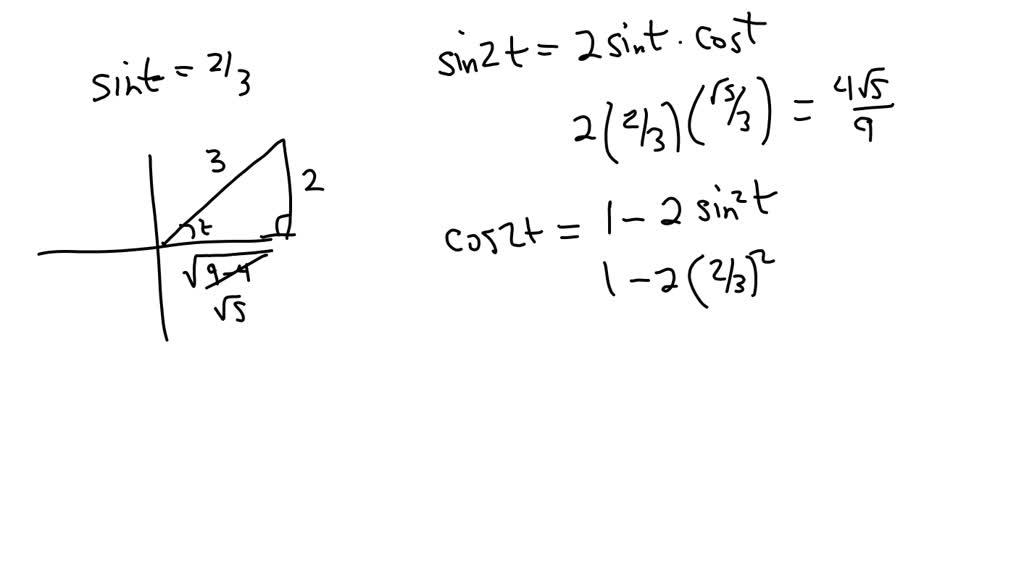 sint = 2/3
3
2
t
√9-4
√5
sin2t = 2sint · cost
2(2/3)(√5/3) = 4√5/9
cos2t = 1 - 2 sin²t
1 - 2(2/3)²